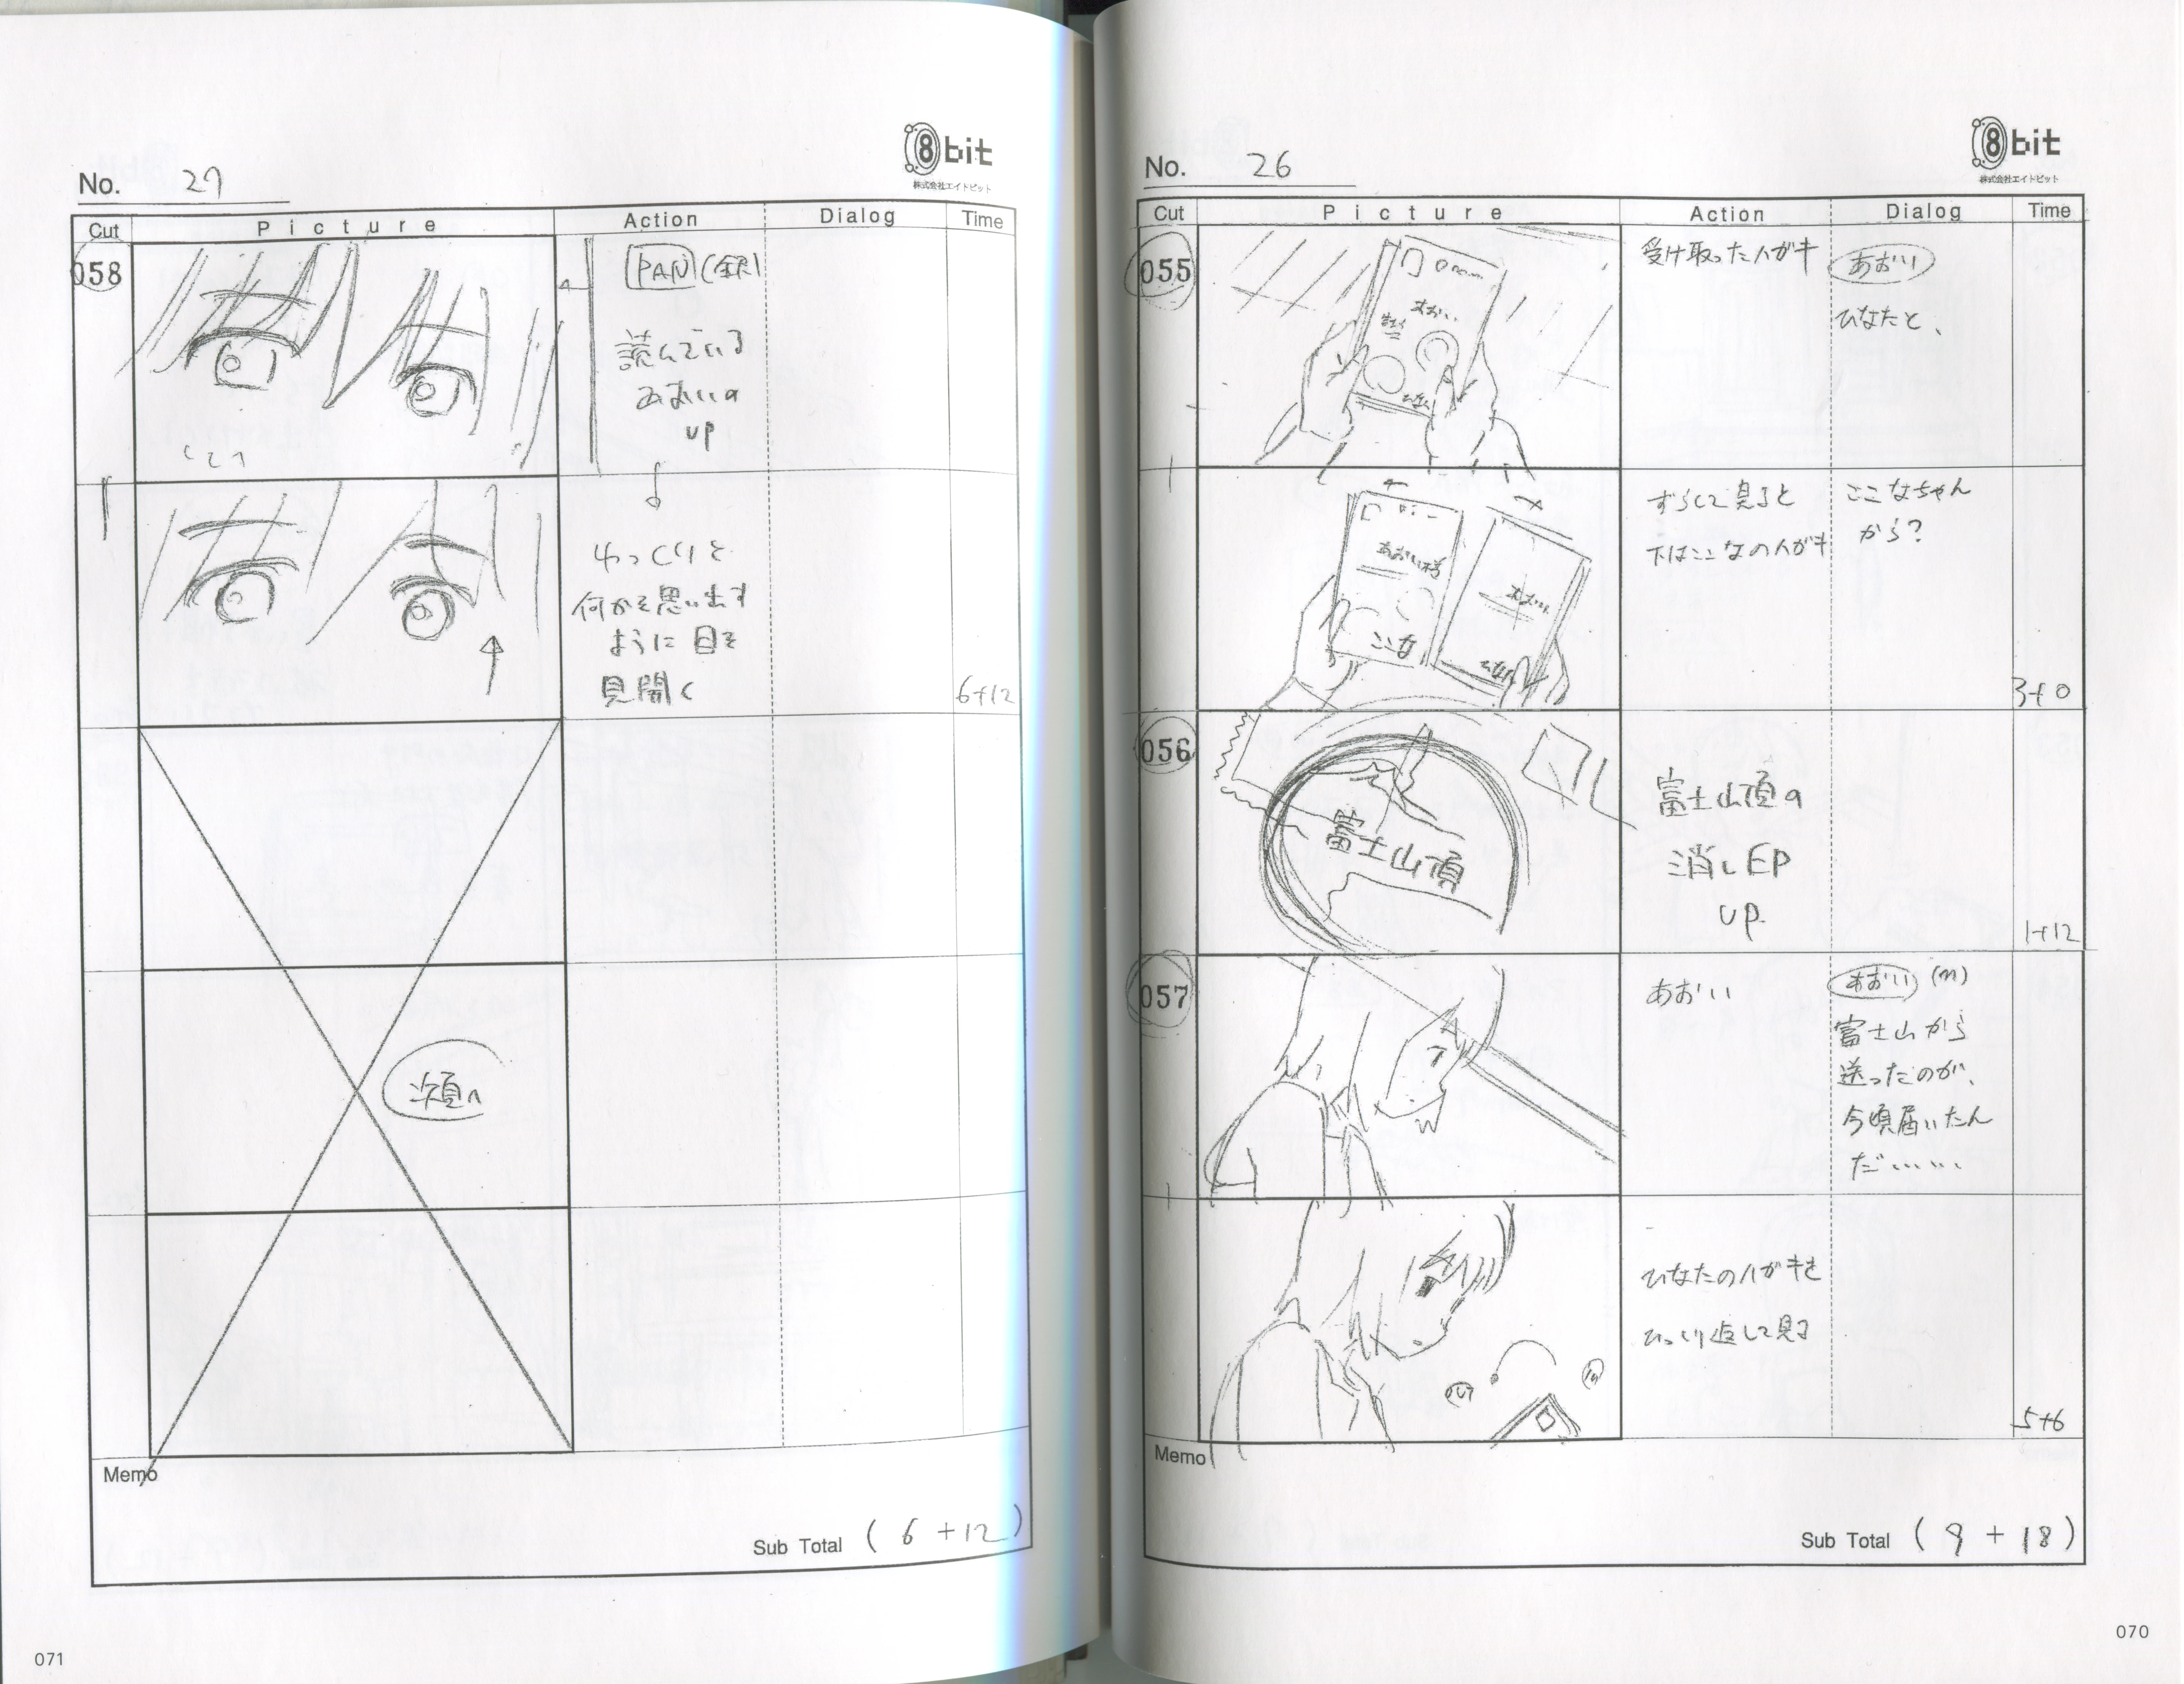 No. 26
8bit
株式会社エイトビット
Cut Picture Action Dialog Time
055
受け取ったハガキ
あおい
ひなたと、
ずらして見ると
下はここなのハガキ
ここなちゃん
から?
あおい様
ここな
3+0
056
富士山頂
富士山頂の
消しEP
UP
1+12
057
あおい
あおい (m)
富士山から
送ったのが、
今頃届いたん
だ……
ひなたのハガキを
ひっくり返して見る
5+6
Memo
Sub Total ( 9 + 18 )
070
No. 27
8bit
株式会社エイトビット
Cut Picture Action Dialog Time
058
PAN
読んでいる
あおいの
UP
ゆっくりと
何かを思い出す
ように目を
見開く
6+12
次頁へ
Memo
Sub Total ( 6 + 12 )
071